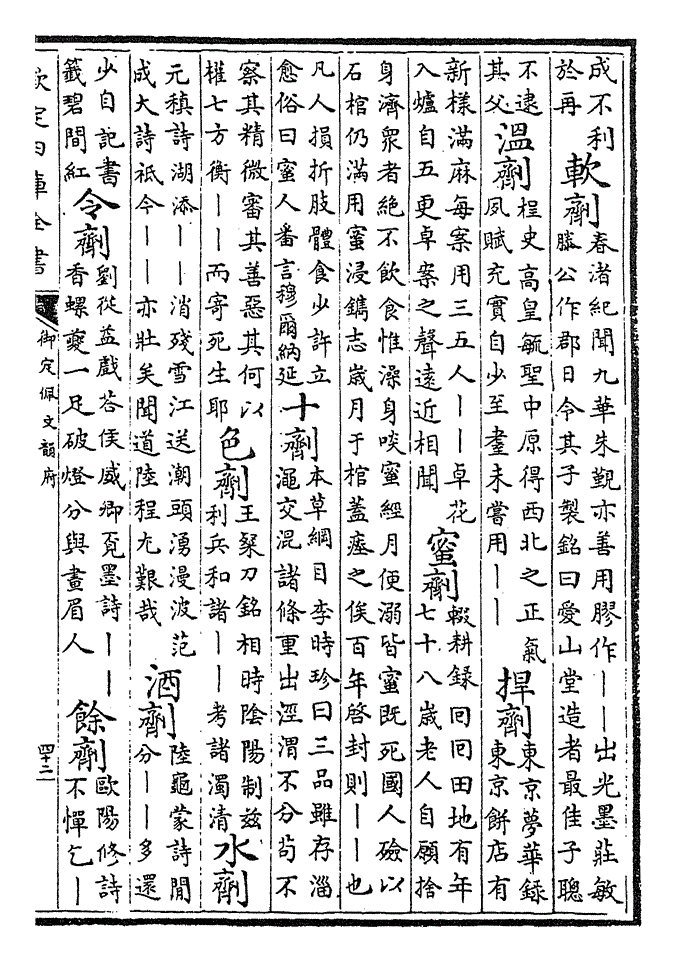 成不利
於再
軟劑
春渚紀聞九華朱覲亦善用膠作——出光墨莊敏
滕公作郡日令其子製銘曰愛山堂造者最佳子聰
不逮
其父
溫劑
桯史高皇毓聖中原得西北之正氣
夙賦充實自少至耋未嘗用——
捍劑
東京夢華錄
東京餅店有
新様滿麻每案用三五人——卓花
入爐自五更卓案之聲遠近相聞
蜜劑
輟耕録回回田地有年
七十八歲老人自願捨
身濟衆者絶不飲食惟澡身啖蜜經月便溺皆蜜既死國人殮以
石棺仍滿用蜜浸鐫志歲月于棺蓋瘞之俟百年啓封則——也
凡人損折肢體食少許立
愈俗曰蜜人番言穆爾納延
十劑
本草綱目李時珍曰三品雖存淄
澠交混諸條重出涇渭不分茍不
察其精微審其善惡其何以
權七方衡——而寄死生耶
色劑
王粲刀銘相時陰陽制兹
利兵和諸——考諸濁清
水劑
元稹詩湖添——消殘雪江送潮頭湧漫波范
成大詩祗今——亦壯矣聞道陸程尤艱哉
酒劑
陸龜蒙詩閒
分——多還
少自記書
籤碧間紅
令劑
劉從益戲答侯威卿覓墨詩——
香螺夔一足破燈分與畫眉人
餘劑
歐陽修詩
不憚乞—
欽定四庫全書
御定佩文韻府
四十二